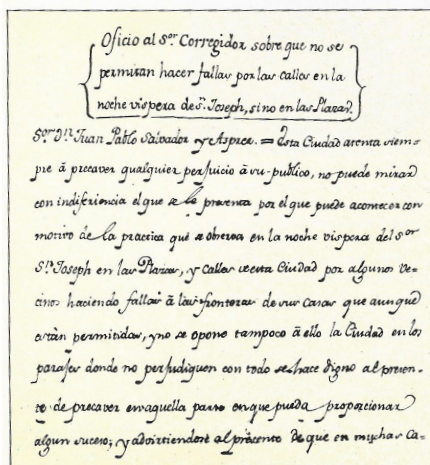 Oficio al S.or Corregidor sobre que no se
permitan hacer fallas por las calles en la
noche vispera de S.n Joseph, sino en las Plazas.
S.or D.n Juan Pablo Salvador y Asprer. = Esta Ciudad atenta siem-
pre à precaver qualquier perjuicio à su publico, no puede mirar
con indiferiencia el que se le presenta por el que puede acontecer con
motivo de la practica que se observa en la noche vispera del S.or
S.n Joseph en las Plazas, y calles de esta Ciudad por algunos ve-
cinos haciendo fallas à las fronteras de sus casas que aunque
estàn permitidas, y no se opone tampoco à ello la Ciudad en los
parajes donde no perjudiquen con todo se hace digno al presen-
te de precaver en aquella parte en que pueda proporcionar
algun suceso; y advirtiendose al presente de que en muchas Ca-